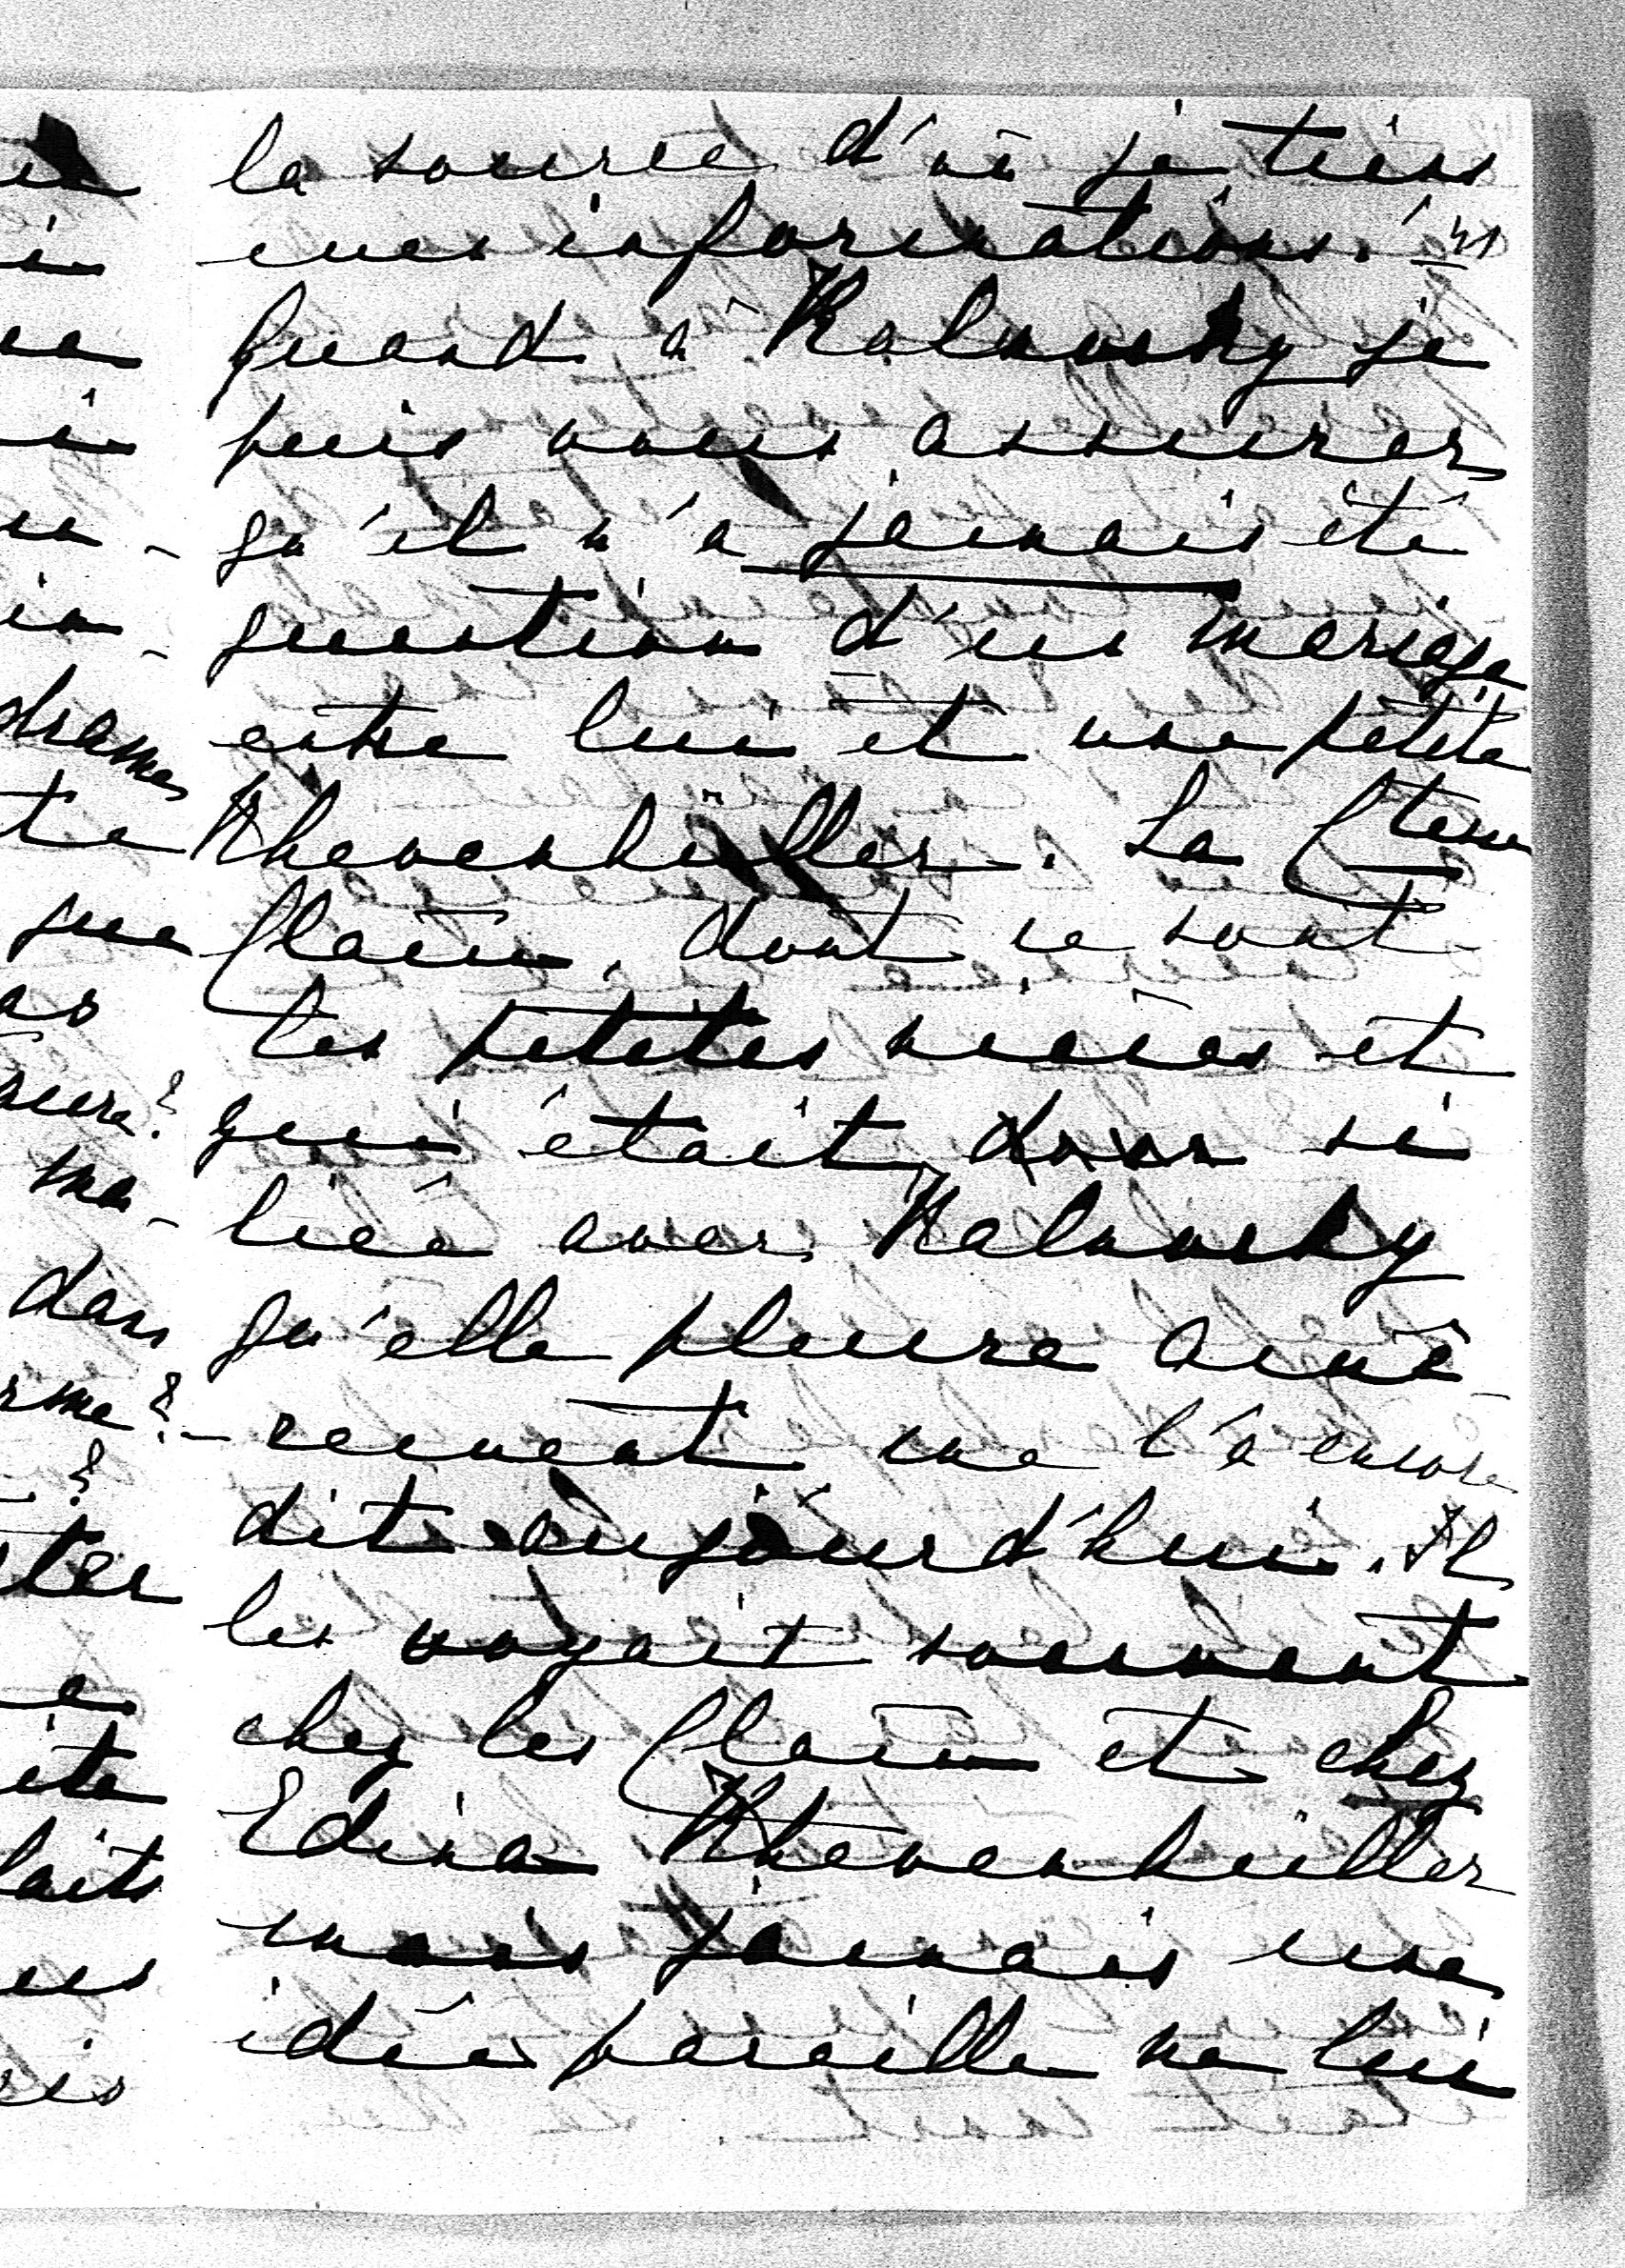 la source d'où je tiens
mes informations.
Quand à Kalnocky je
puis vous assurer
qu'il n'a jamais été
question d'un mariage
entre lui et une petite
Khevenhüller. La Ctesse
Clam, dont ce sont
les petites nièces et
qui était, si
liée avec Kalnocky
qu'elle pleure amè-
rement me l'a encore
dit aujourd'hui. Il
les voyait souvent
chez les Clam et chez
Edina Khevenhüller
mais jamais une
idée pareille ne lui
drames
te
que
dans